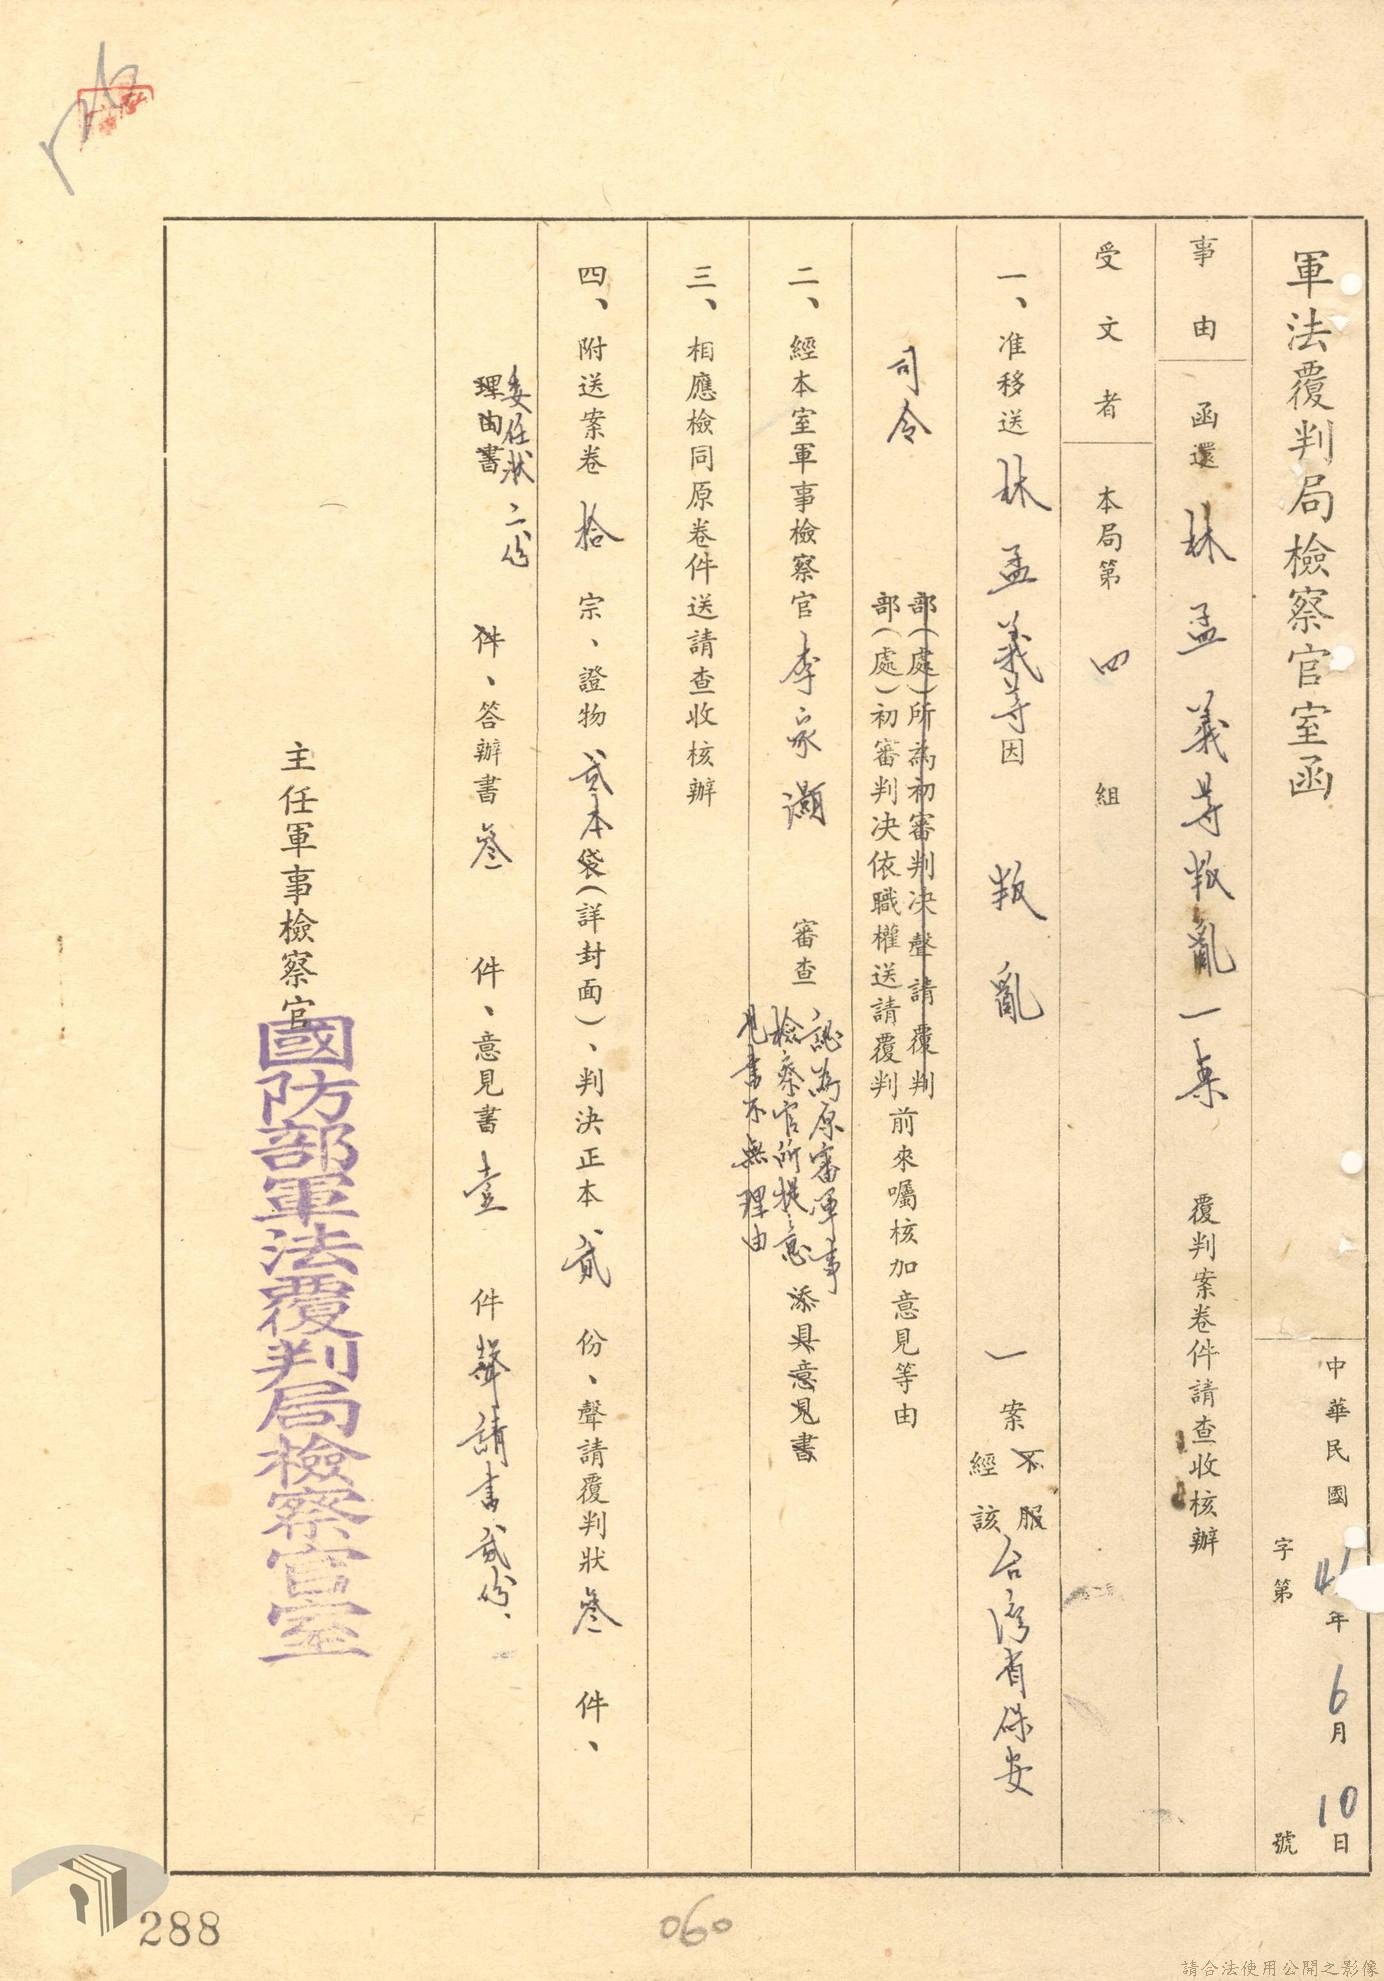 軍法覆判局檢察官室函
中華民國41年6月10日
字第　號
事由
函還林孟義等叛亂一案覆判案卷件請查收核辦
受文者
本局第四組
一、准移送林孟義等因叛亂一案
不服
經該台湾省保安
司令
部(處)所為初審判决聲請覆判
部(處)初審判决依職權送請覆判
前來囑核加意見等由
二、經本室軍事檢察官李家灝審查
認為原審軍事
檢察官所提意
見書不無理由
添具意見書
三、相應檢同原卷件送請查收核辦
四、附送案卷拾宗、證物貳本袋(詳封面)、判決正本貳份、聲請覆判狀叁件、
委任狀二份
理由書
件、答辦書叁件、意見書壹件聲請書貳份、
主任軍事檢察官
國防部軍法覆判局檢察官室
288
060
請合法使用公開之影像